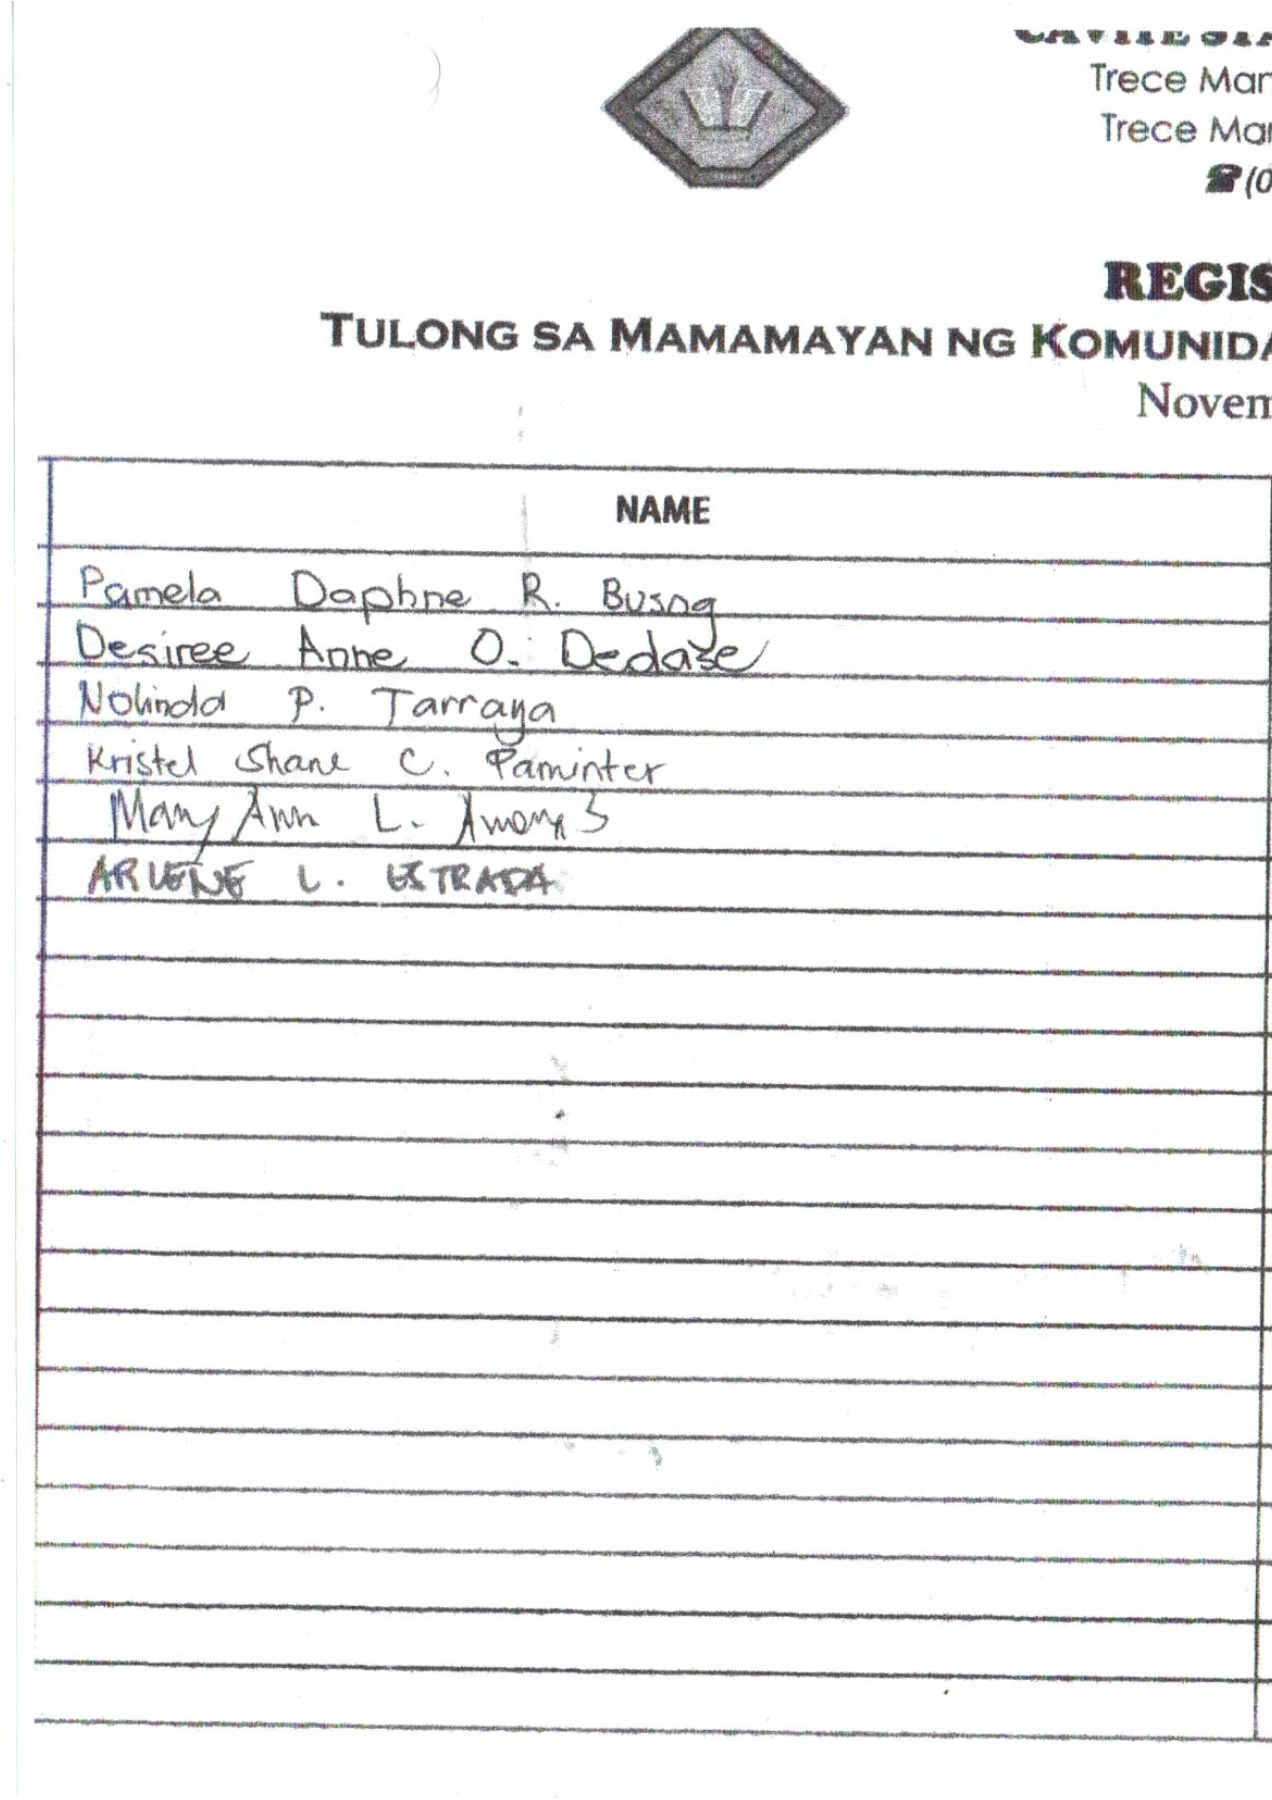 Trece Mar
Trece Mar
☎(0
REGIS
TULONG SA MAMAMAYAN NG KOMUNIDA
Novem
NAME
Pamela Daphne R. Busog
Desiree Anne O. Dedase
Nolinda P. Tarraya
Kristel Shane C. Paminter
Mary Ann L.
ARLENE L. ESTRADA